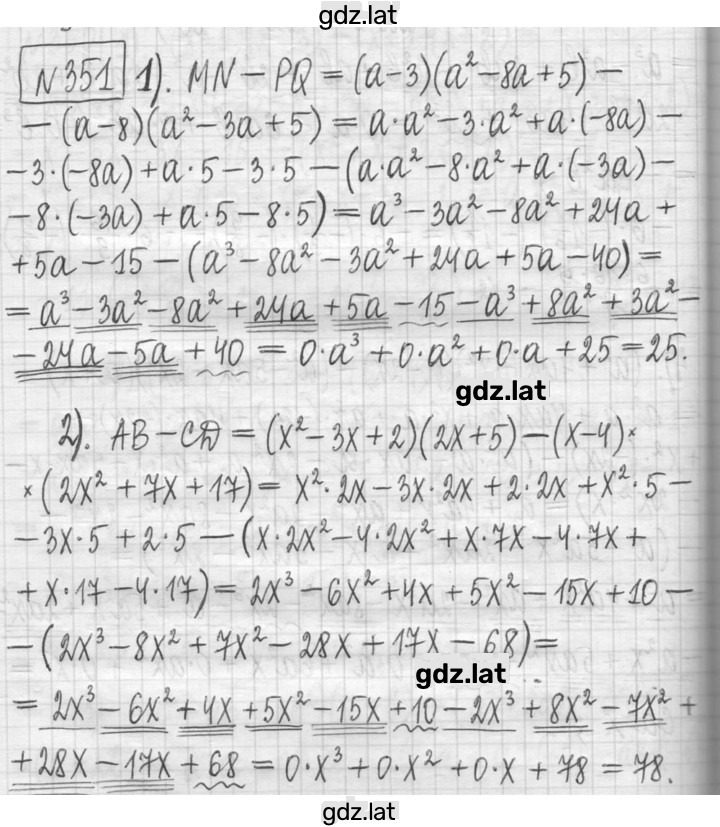 gdz.lat
N351 1). MN − PQ = (a−3)(a² −8a+5) −
− (a−8)(a² −3a+5) = a·a² −3·a² + a·(−8a) −
−3·(−8a) + a·5 −3·5 − (a·a² −8·a² + a·(−3a) −
−8·(−3a) + a·5 −8·5) = a³ −3a² −8a² + 24a +
+5a −15 − (a³ −8a² −3a² +24a +5a −40) =
= a³ −3a² −8a² + 24a + 5a −15 −a³ + 8a² + 3a² −
−24a −5a + 40 = 0·a³ + 0·a² + 0·a + 25 = 25.
gdz.lat
2). AB − CD = (x² −3x+2)(2x+5) − (x−4)×
×(2x² + 7x + 17) = x²·2x −3x·2x + 2·2x + x²·5 −
−3x·5 + 2·5 − (x·2x² −4·2x² + x·7x −4·7x +
+ x·17 −4·17) = 2x³ −6x² + 4x + 5x² −15x + 10 −
− (2x³ −8x² + 7x² −28x + 17x − 68) =
gdz.lat
= 2x³ −6x² + 4x + 5x² −15x + 10 −2x³ + 8x² −7x² +
+28x −17x + 68 = 0·x³ + 0·x² + 0·x + 78 = 78.
gdz.lat